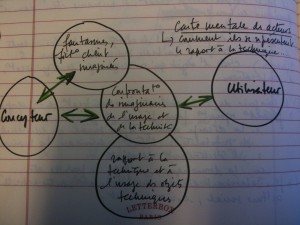 Carte mentale des acteurs
↳ comment ils se représentent
le rapport à la technique
fantasmes,
client
imaginé
Concepteur
confrontat°
des imaginaires
de l'usage et
de la technique
Utilisateur
rapport à la
technique et à
l'usage des objets
techniques
LETTERBOX